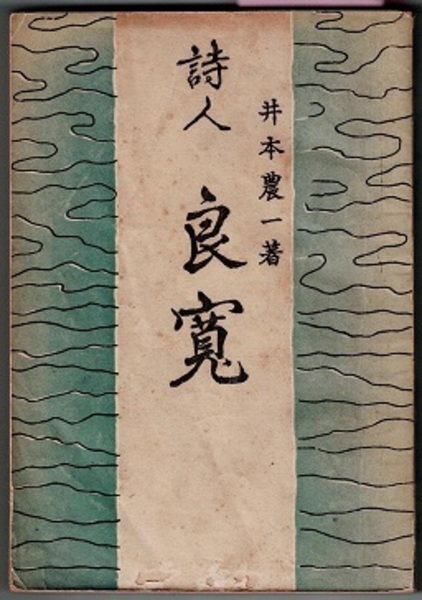 井本農一著
詩人 良寛